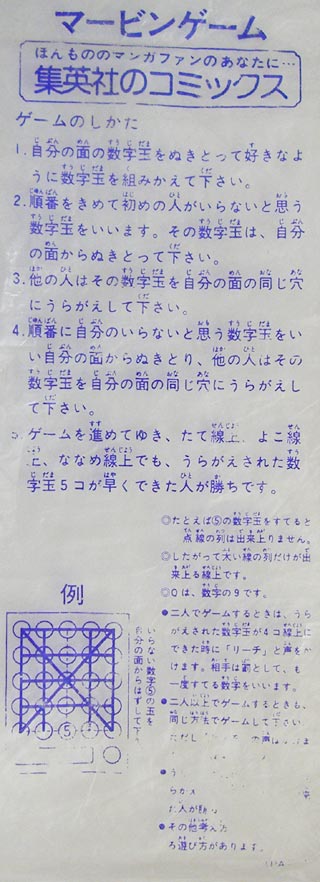 マービンゲーム
ほんもののマンガファンのあなたに…
集英社のコミックス
ゲームのしかた
1. 自分の面の数字玉をぬきとって好きなよ
うに数字玉を組みかえて下さい。
2. 順番をきめて初めの人がいらないと思う
数字玉をいいます。その数字玉は、自分
の面からぬきとって下さい。
3. 他の人はその数字玉を自分の面の同じ穴
にうらがえして下さい。
4. 順番に自分のいらないと思う数字玉をい
い自分の面からぬきとり、他の人はその
数字玉を自分の面の同じ穴にうらがえし
て下さい。
5. ゲームを進めてゆき、たて線上、よこ線
上、ななめ線上でも、うらがえされた数
字玉5コが早くできた人が勝ちです。
◎たとえば⑤の数字玉をすてると
点線の列は出来上りません。
◎したがって太い線の列だけが出
来上る線上です。
◎9は、数字の9です。
例
いらない数字⑤の玉を
自分の面からはずして下
⑤
●二人でゲームするときは、うら
がえされた数字玉が4コ線上に
できた時に「リーチ」と声をか
けます。組手は罰として、も
一度すてる数字をいいます。
●二人以上でゲームするときも、
同じ方法でゲームして下さい
ただし
●う
らか
た人が
●その他考え
ろ遊び方があります。